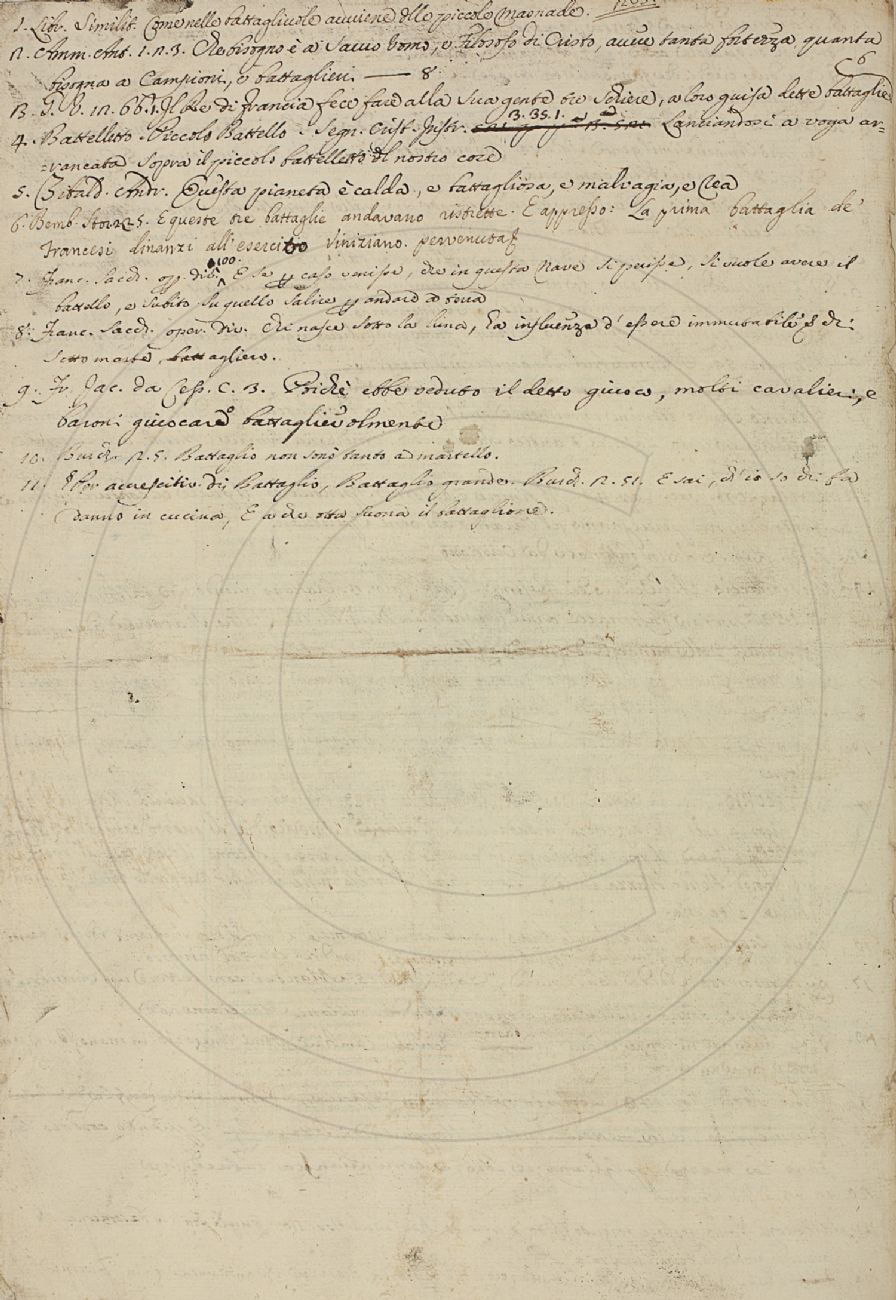 1. Libr. Similit. Come nelle battagliuole avviene dlle piccole masnade.
2. Amm. Ant. 1. 2. 3. Che bisogno è a Savio Uomo, e Filosofo di Cristo, avere tanta fortezza, quanta
bisogna a Campioni, e battaglieri. — 8
3. G. V. 12. 66. 1. Il Re di Francia fece fare alla sua gente tre Schiere, a loro guisa dette battaglie 6
4. Battelletto. Piccolo Battello. Segn. Crist. Instr. 3. 35. 1. Lanciandosi a voga ar=
=rancata sopra il piccolo battelletto dl nostro core
5. Zibald. Andr. Questa pianeta è calda, e battagliosa, e malvagia, e rea
6. Bemb. Stor. 2. 5. E queste tre battaglie andavano ristrette. E appresso: La prima battaglia de'
Francesi dinanzi all'esercito Viniziano. pervenuta
7. Franc. Sacch. op. div. 100. E se p caso venisse, che in questa Nave si perisse, si vuole avere il
battello, e subito su quello salire p andare a terra
8. Franc. Sacch. oper. div. Chi nasce sotto la luna, ha influenza d'essere immutabile chi
sotto marte, battagliero.
9. Fr. Jac. da Cess. C. 3. Poichè ebbe veduto il detto giuoco, molti cavalieri, e
baroni giuocare battaglievolmente
10. Burch. 2. 5. Battaglio non sonò tanto a martello.
11. Per accrescitiv. di Battaglio, Battaglio grande. Burch. 2. 51. E sai, ch'io so chi fa
danno in cucina, E a che otta suona il battaglione.